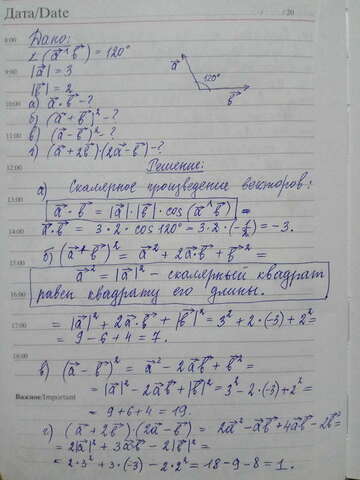 Дата/Date / /20
8:00 Дано:
∠(a⃗^b⃗) = 120°
9:00 |a⃗| = 3
|b⃗| = 2
a⃗ 120° b⃗
10:00 а) a⃗·b⃗ - ?
б) (a⃗+b⃗)² - ?
11:00 в) (a⃗-b⃗)² - ?
г) (a⃗+2b⃗)·(2a⃗-b⃗) - ?
12:00 Решение:
а) Скалярное произведение векторов:
13:00 a⃗·b⃗ = |a⃗|·|b⃗|·cos(a⃗^b⃗) =
14:00 a⃗·b⃗ = 3·2·cos120° = 3·2·(-1/2) = -3.
б) (a⃗+b⃗)² = a⃗² + 2a⃗·b⃗ + b⃗² =
a⃗² = |a⃗|² - скалярный квадрат
16:00 равен квадрату его длины.
17:00 = |a⃗|² + 2a⃗·b⃗ + |b⃗|² = 3² + 2·(-3) + 2² =
= 9 - 6 + 4 = 7.
18:00 в) (a⃗-b⃗)² = a⃗² - 2a⃗b⃗ + b⃗² =
= |a⃗|² - 2a⃗b⃗ + |b⃗|² = 3² - 2·(-3) + 2² =
Важно/Important
= 9+6+4 = 19.
г) (a⃗+2b⃗)·(2a⃗-b⃗) = 2a⃗² - a⃗b⃗ + 4a⃗b⃗ - 2b⃗² =
= 2|a⃗|² + 3a⃗b⃗ - 2|b⃗|² =
= 2·3² + 3·(-3) - 2·2² = 18 - 9 - 8 = 1.